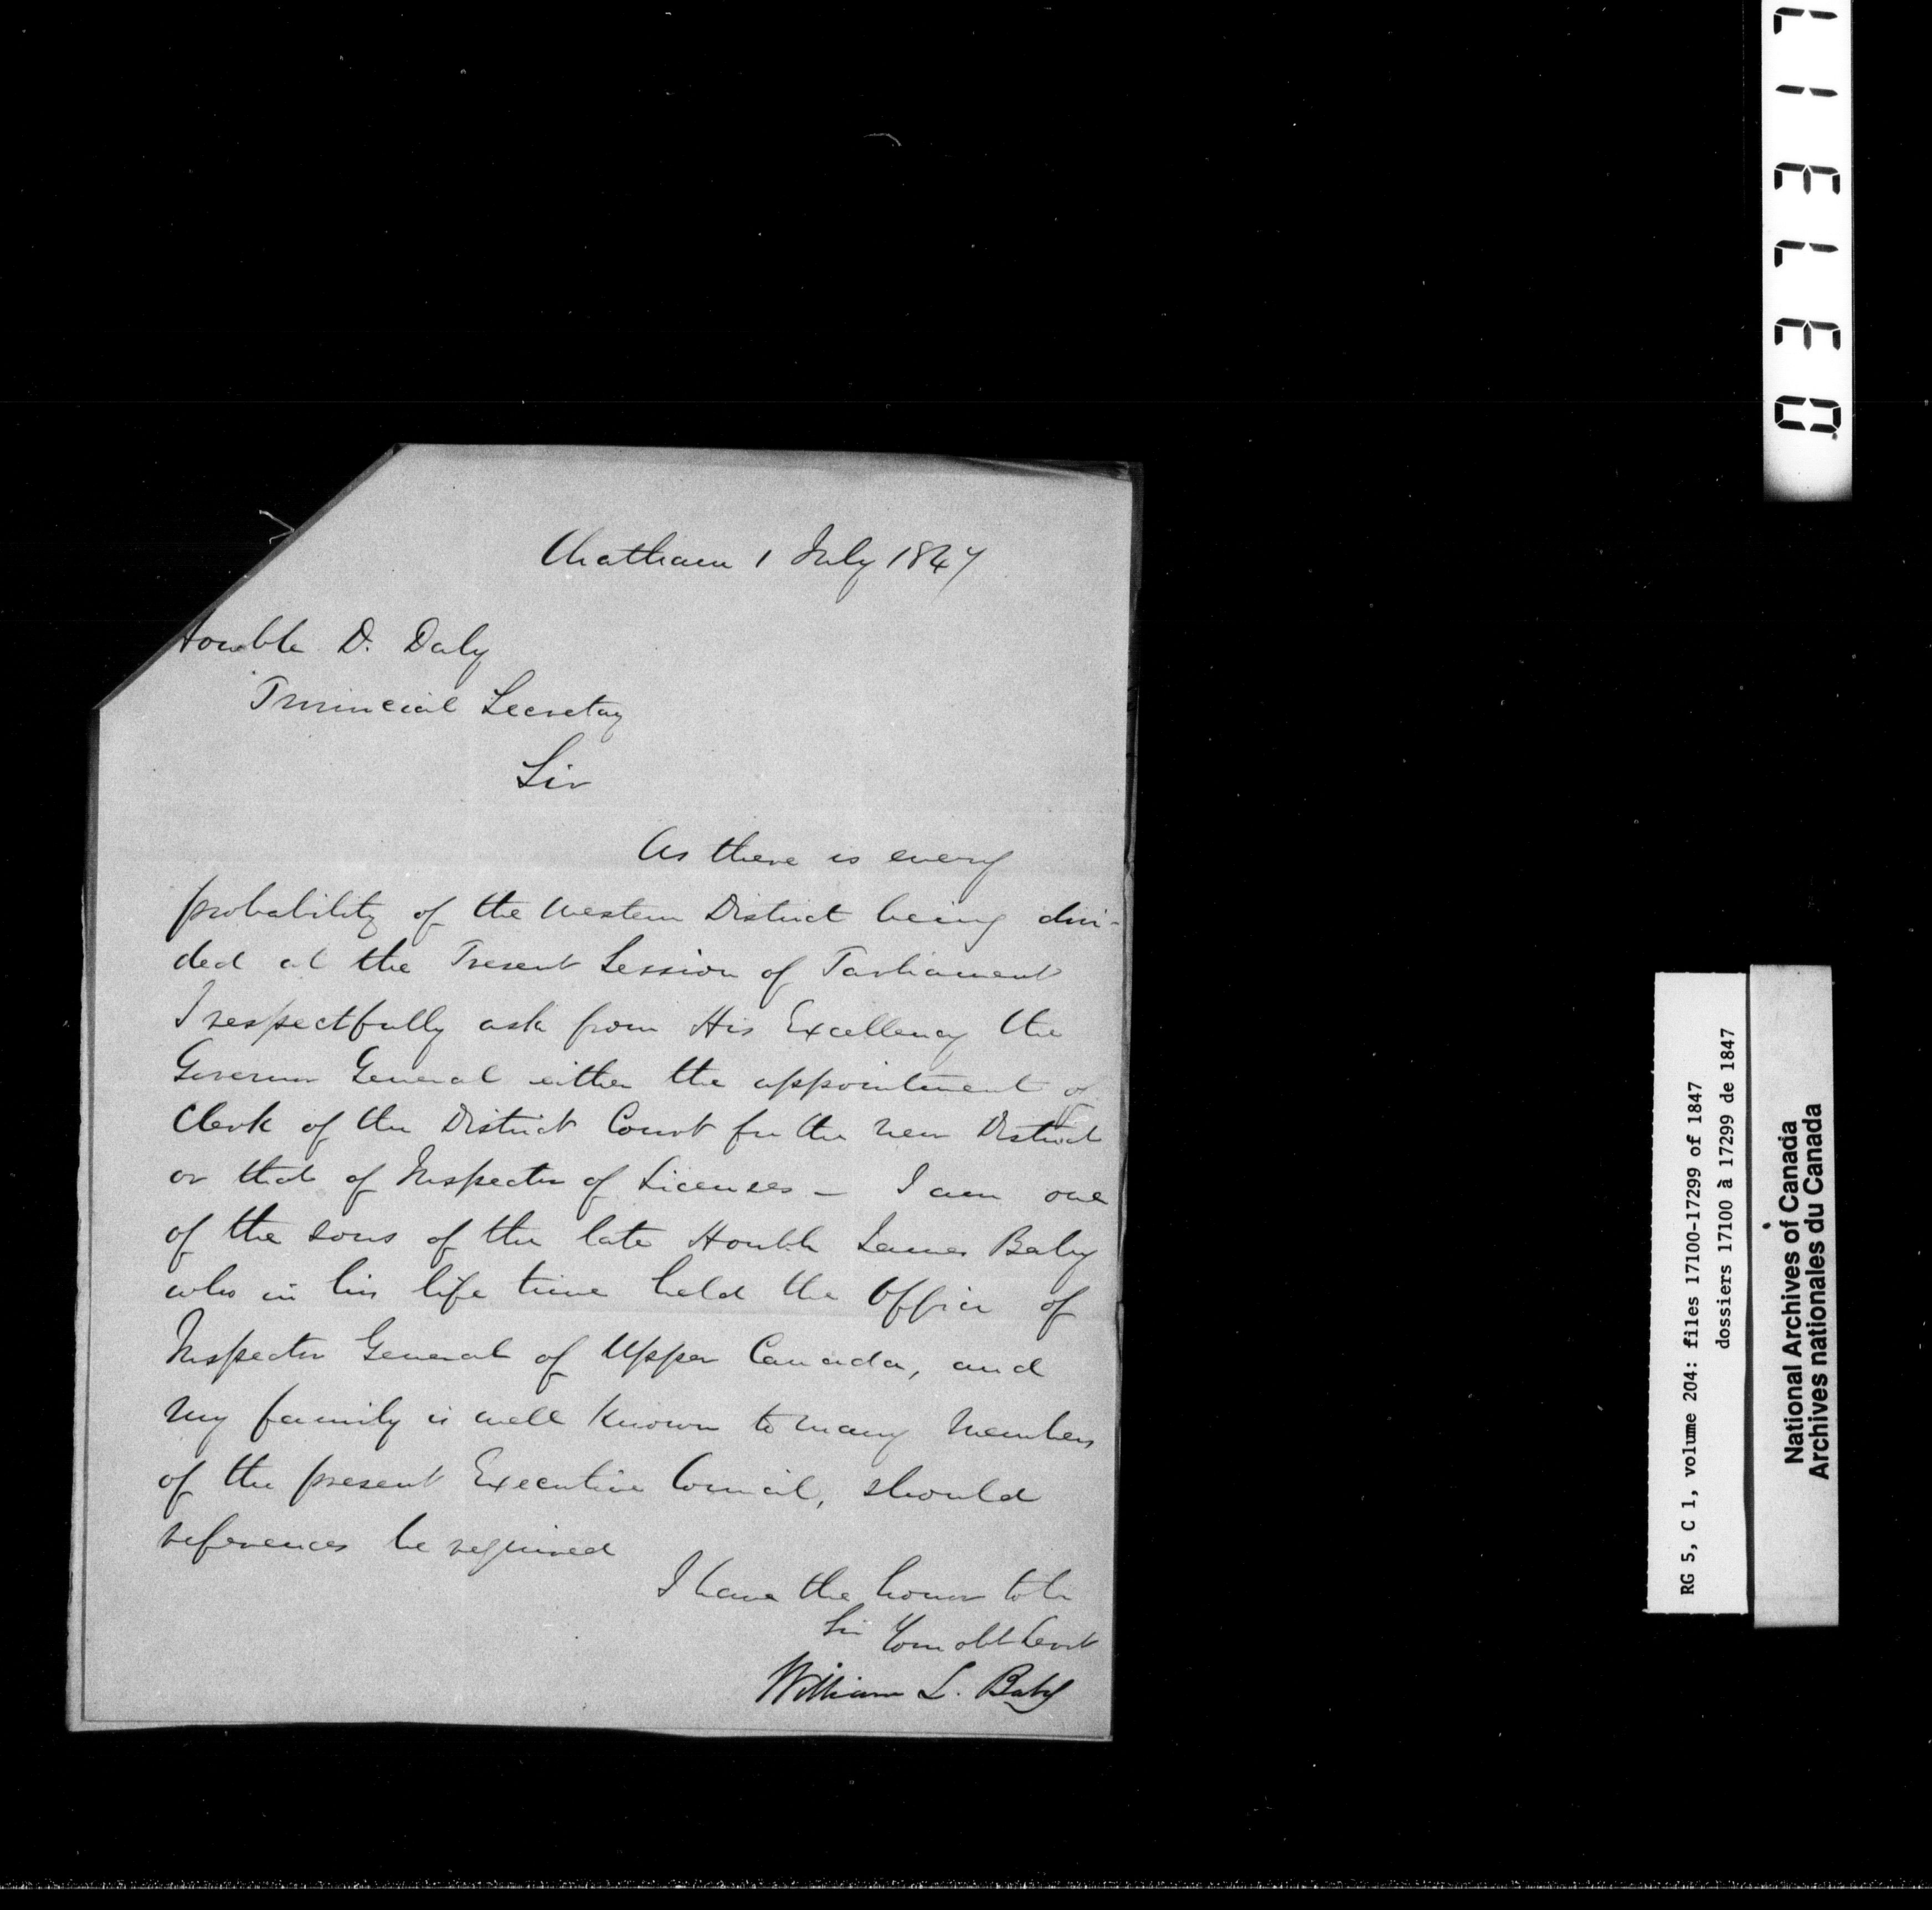 Chatham 1 July 1847
Honble D. Daly
Provincial Secretary
Sir
As there is every
probability of the Western District being divi-
ded at the Present Session of Parliament
I respectfully ask from His Excellency the
Governor General either the appointment of
Clerk of the District Court for the new District
or that of Inspector of Licenses — I am one
of the sons of the late Honble James Baby
who in his life time held the Office of
Inspector General of Upper Canada, and
my family is well known to many Members
of the present Executive Council, should
references be required
I have the honor to be
Sir Your obt Servt
William L. Baby
RG 5, C 1, volume 204: files 17100-17299 of 1847
dossiers 17100 à 17299 de 1847
National Archives of Canada
Archives nationales du Canada